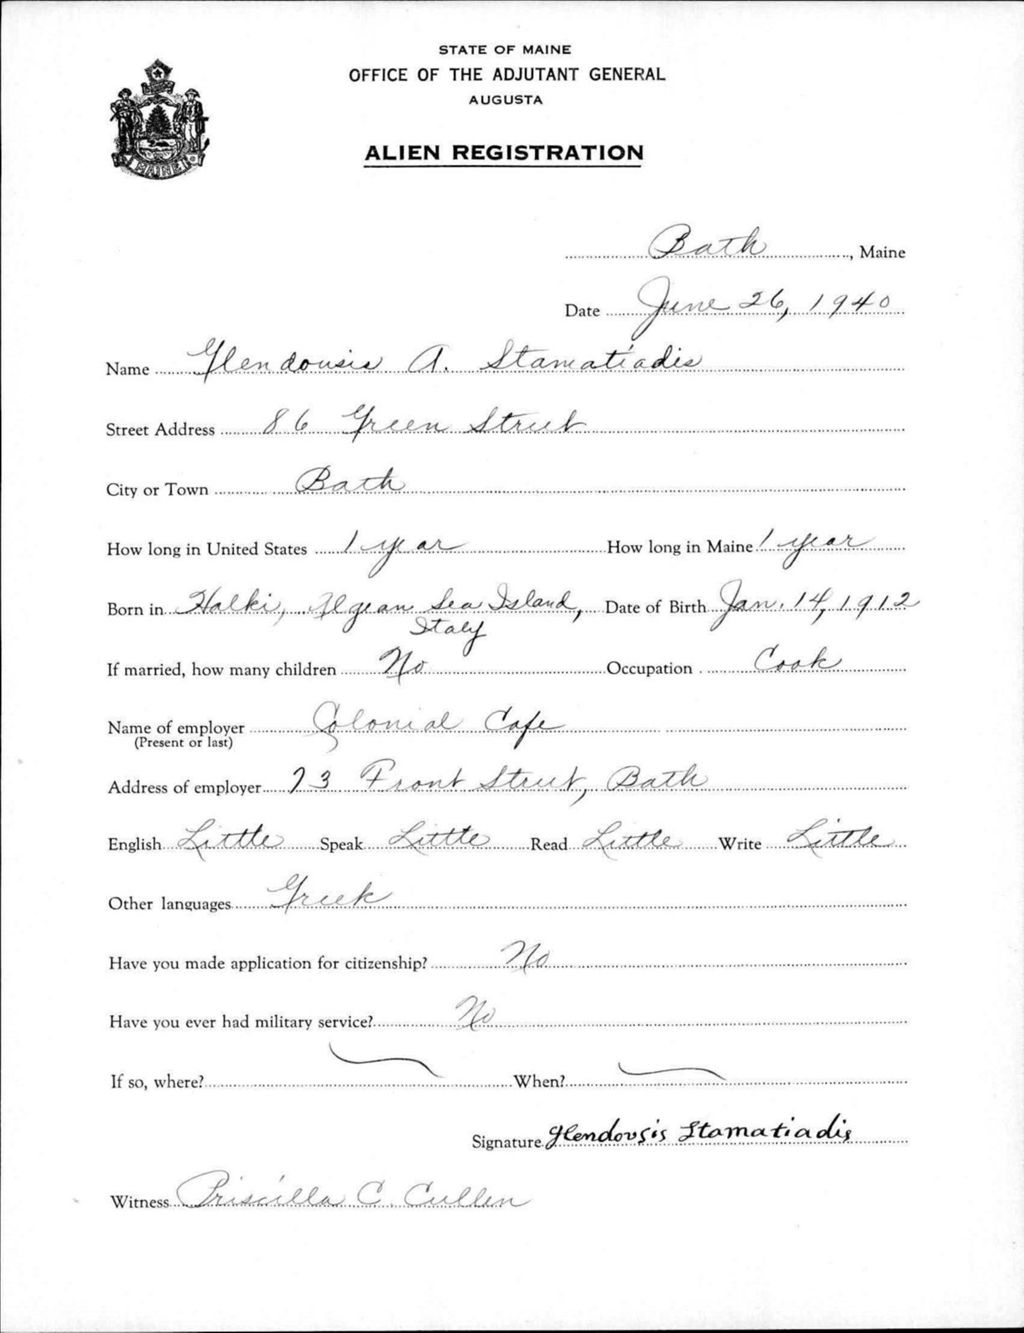 STATE OF MAINE
OFFICE OF THE ADJUTANT GENERAL
AUGUSTA
ALIEN REGISTRATION
MAINE
Bath, Maine
Date June 26, 1940
Name Glendousis A. Stamatiadis
Street Address 86 Green Street
City or Town Bath
How long in United States 1 year How long in Maine 1 year
Born in Halki, Aegean Sea Island, Date of Birth Jan. 14, 1912
Italy
If married, how many children No Occupation Cook
Name of employer Colonial Cafe
(Present or last)
Address of employer 73 Front Street, Bath
English Little Speak Little Read Little Write Little
Other languages Greek
Have you made application for citizenship? No
Have you ever had military service? No
If so, where? When?
Signature Glendousis Stamatiadis
Witness Priscilla C. Cullen